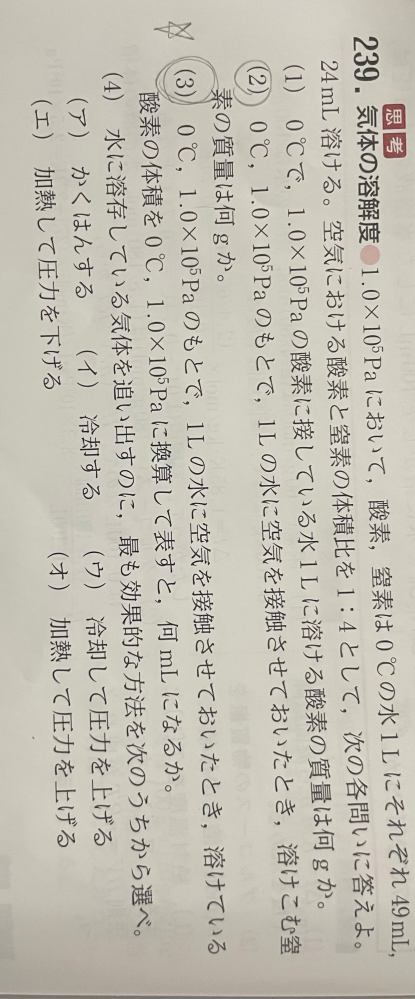 思考
239. 気体の溶解度●1.0×10⁵Paにおいて，酸素，窒素は0℃の水1Lにそれぞれ49mL，
24mL溶ける。空気における酸素と窒素の体積比を1：4として，次の各問いに答えよ。
(1) 0℃で，1.0×10⁵Paの酸素に接している水1Lに溶ける酸素の質量は何gか。
(2) 0℃，1.0×10⁵Paのもとで，1Lの水に空気を接触させておいたとき，溶けこむ窒
素の質量は何gか。
(3) 0℃，1.0×10⁵Paのもとで，1Lの水に空気を接触させておいたとき，溶けている
酸素の体積を0℃，1.0×10⁵Paに換算して表すと，何mLになるか。
(4) 水に溶存している気体を追い出すのに，最も効果的な方法を次のうちから選べ。
(ア) かくはんする (イ) 冷却する (ウ) 冷却して圧力を上げる
(エ) 加熱して圧力を下げる (オ) 加熱して圧力を上げる